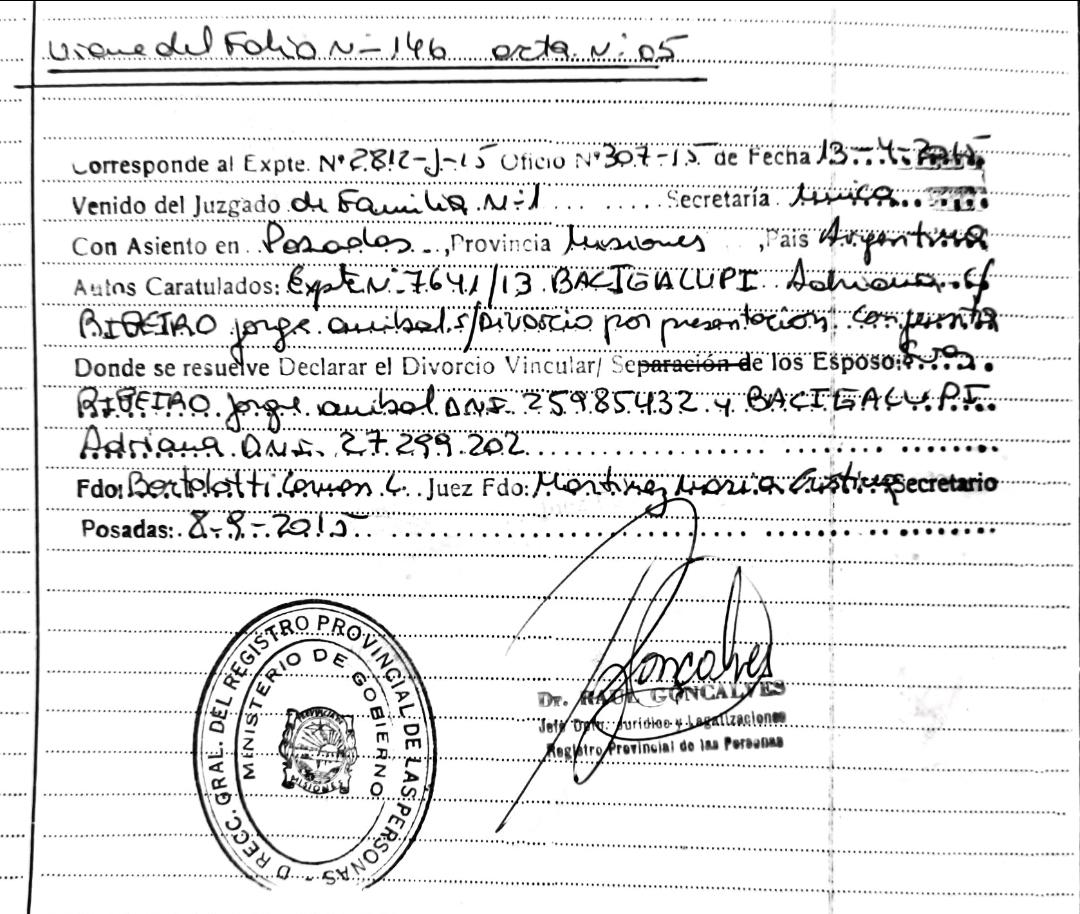 Viene del Folio N- 146 acta N: 05
Corresponde al Expte. Nº 2812-J-15 Oficio Nº 307-15 de Fecha 13-4-2015
Venido del Juzgado de Familia N-1 ... ..... Secretaría Unica..
Con Asiento en Posadas..., Provincia Misiones ,País Argentina
Autos Caratulados: Expte N-7641/13 BACIGALUPI Adriana c/
RIBEIRO jorge anibal s/Divorcio por presentación conjunta
Donde se resuelve Declarar el Divorcio Vincular/ Separación de los Esposo:
RIBEIRO jorge anibal D.N.I. 25985432 y BACIGALUPI
Adriana D.N.I. 27.299.202
Fdo: Bertolotti Carmen C. Juez Fdo: Martinez Maria Cristina Secretario
Posadas: 8-9-2015
DIRECC. GRAL. DEL REGISTRO PROVINCIAL DE LAS PERSONAS -
MINISTERIO DE GOBIERNO
MISIONES
Goncalves
Dr. RAUL GONCALVES
Jefe Dpto. Jurídico y Legalizaciones
Registro Provincial de las Personas